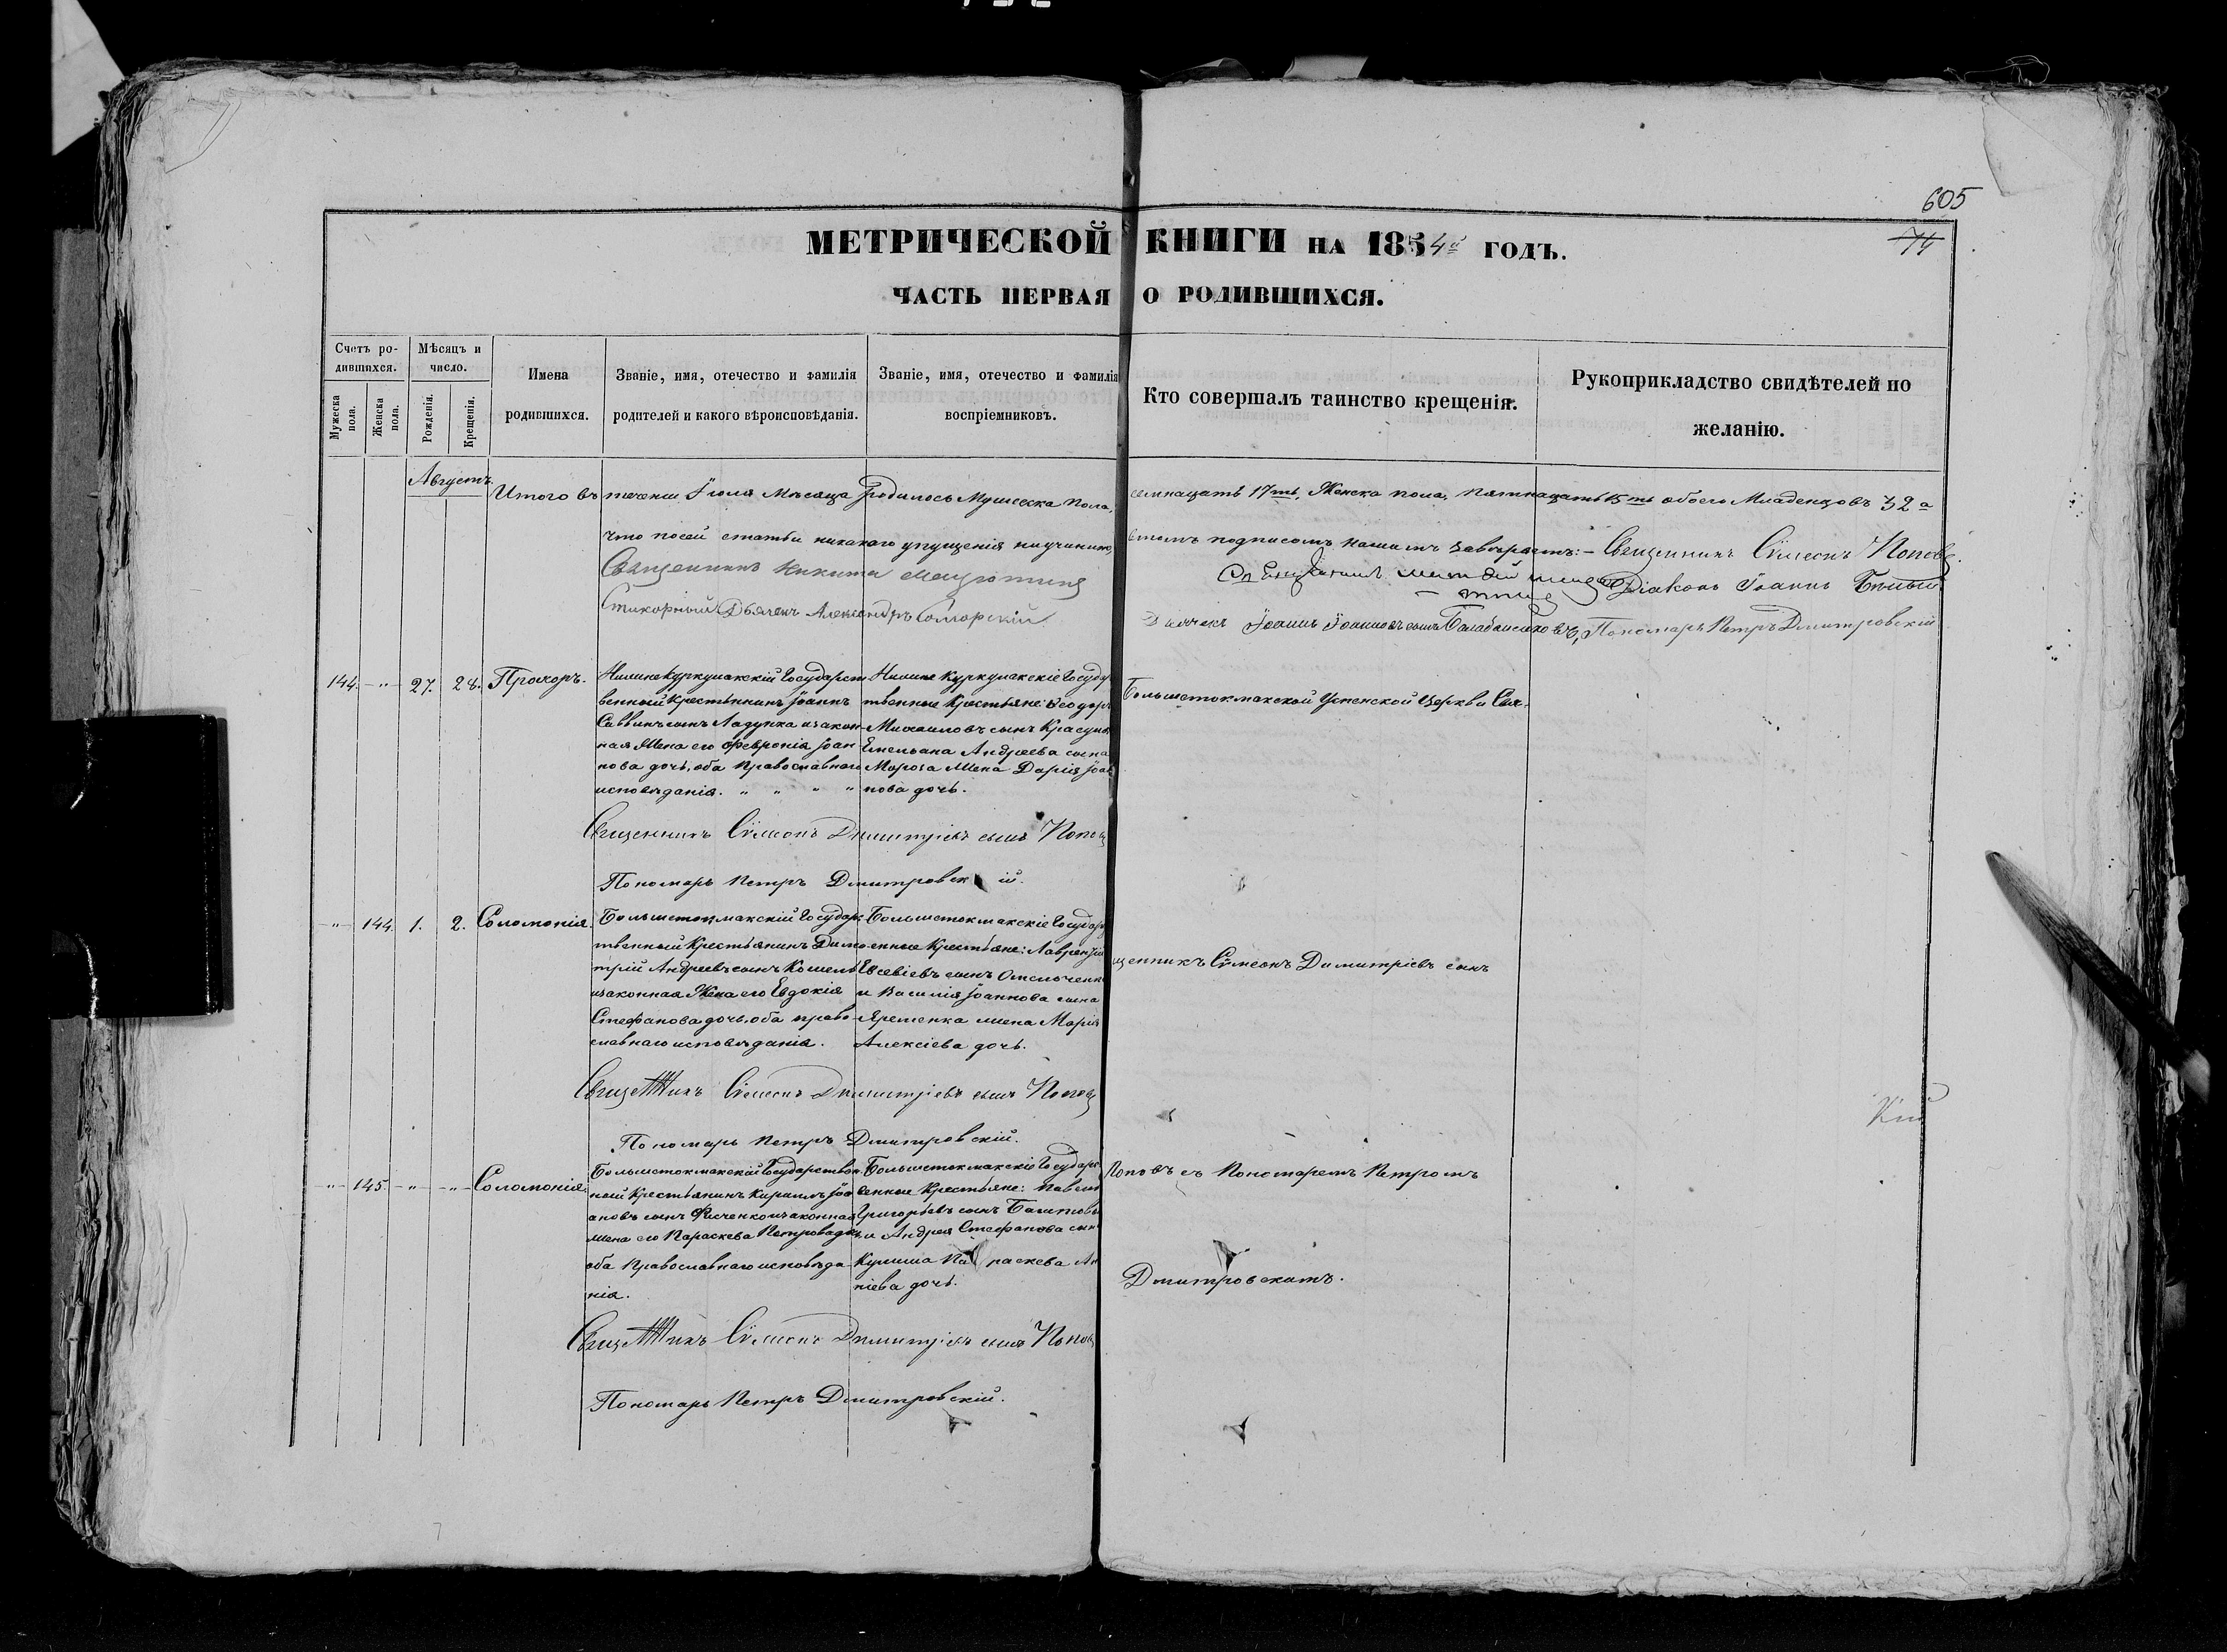 605
74
МЕТРИЧЕСКОЙ КНИГИ НА 1854й ГОДЪ.
ЧАСТЬ ПЕРВАЯ О РОДИВШИХСЯ.
Счетъ родившихся.
Мужеска пола.
Женска пола.
Мѣсяцъ и число.
Рожденія.
Крещенія.
Имена родившихся.
Званіе, имя, отечество и фамилія родителей и какого вѣроисповѣданія.
Званіе, имя, отечество и фамилія воспріемниковъ.
Кто совершалъ таинство крещенія.
Рукоприкладство свидѣтелей по желанію.
Августъ.
Итого въ теченіи Іюля Мѣсяца родилось Мужеска пола, семнацать 17ть, Женска пола, пятнацать 15ть обоего Младенцовъ 32а
что посей статьи никакого упущенія неучинино, втомъ подписомъ нашимъ завѣряемъ:- Священникъ Сѵмеонъ Поповъ.
Священникъ Никита
Діаконъ Іоаннъ Бѣлый
Дьячекъ Александръ
Дьячекъ Іоаннъ Іоанновъ сынъ Пономарь Петръ Дмитровскій
144. -"- 27. 28. Прохоръ.
Нижнекуркулакскій Государст
венный Крестьянинъ Іоаннъ
Саввинъ сынъ Ладурка изакон
ная Жена его Февронія Іоан
нова дочь, оба Православнаго
исповѣданія. " " " "
Нижне Куркулакскіе Госуда
твенные Крестьяне: Ѳеодоръ
Михаиловъ сынъ
Емельана Андреева сына
Мороза Жена Дарія Іоан
нова дочь.
Большетокмакской Успенской Церкви Свя-
Священникъ Сѵмеонъ Димитріевъ сынъ Поповъ
Пономарь Петръ Дмитровскій.
-"- 144. 1. 2. Соломонія.
Большетокмакскій Государс
твенный Крестьянинъ Дими
трій Андреевъ сынъ Кошель
изаконная Жена его Евдокія
Стефанова дочь, оба право
славнаго исповѣданія.
Большетокмакскіе Государ
венные Крестьяне: Лаврентій
Евсевіевъ сынъ Омельченко
и Василія Іоаннова сына
Яременка жена Марія
Алексіева дочь.
щенникъ Сѵмеонъ Димитріевъ сынъ
Священникъ Сѵмеонъ Димитріевъ сынъ Поповъ
Пономарь Петръ Дмитровскій.
-"- 145. -"- -"- Соломонія.
Большетокмакскій Государствен
ный Крестьянинъ Кириллъ Іоа
нновъ сынъ изаконная
жена его Параскева Петрова дочь,
оба Православнаго исповѣда
нія.
Большетокмакскіе Государс
венные Крестьяне: Павелъ
Григорьевъ сынъ
и Андрея Стефанова сын
Параскева Ан
ніева дочь.
Поповъ съ Пономаремъ Петромъ
Дмитровскимъ.
Священникъ Сѵмеонъ Димитріевъ сынъ Поповъ
Пономарь Петръ Дмитровскій.